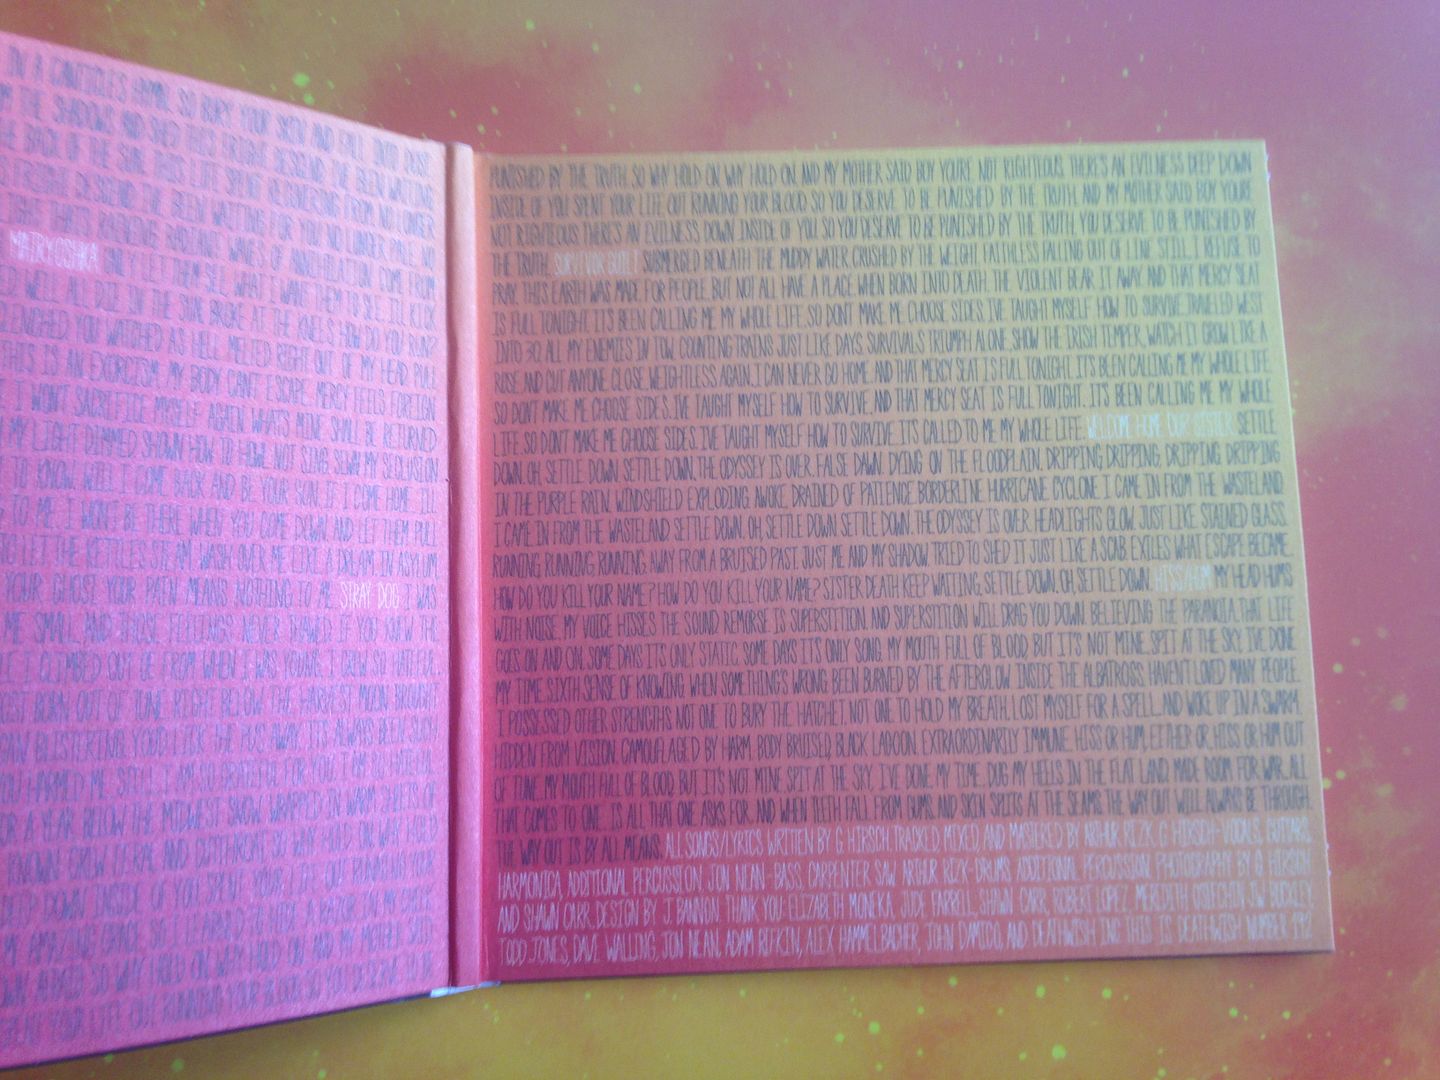 IN A CANTICLE'S HYMN. SO BURY YOUR SKIN AND FALL INTO DUST.
THE SHADOWS AND SHED THIS FRIGHT DESCEND. I'VE BEEN WAITING
BACK OF THE SUN. THIS LIFE SPENT RECOVERING FROM NO LONGER
FRIGHT DESCEND. I'VE BEEN WAITING FOR YOU NO LONGER PALE. NO
LIGHT THAT'S RADIATIVE RADIANT WAVES OF ANNIHILATION COME FROM
MATRYOSHKA ONLY LET THEM SEE WHAT I WANT THEM TO SEE. I'LL KICK
WELL ALL DIE IN THE SUN. BROKE AT THE KNEES HOW DO YOU RUN?
CLENCHED YOU WATCHED AS HELL MELTED RIGHT OUT OF MY HEAD. PULL
THIS IS AN EXORCISM. MY BODY CAN'T ESCAPE. MERCY FEELS FOREIGN
I WON'T SACRIFICE MYSELF AGAIN. WHAT'S MINE SHALL BE RETURNED
MY LIGHT DIMMED SHOWN HOW TO HOWL NOT SING. SEWN MY SECLUSION
TO KNOW. WILL I COME BACK AND BE YOUR SUN. IF I COME HOME I'LL
TO ME. I WON'T BE THERE WHEN YOU COME DOWN. AND LET THEM PULL
LET THE KETTLES STEAM WASH OVER ME LIKE A DREAM IN ASYLUM
YOUR GHOST. YOUR PATH MEANS NOTHING TO ME. STRAY DOG I WAS
ME SMALL, AND THOSE FEELINGS NEVER THAWED. IF YOU KNEW THE
I CLIMBED OUT OF FROM WHEN I WAS YOUNG. I GREW SO HATEFUL
BORN OUT OF TUNE. RIGHT BELOW THE HARVEST MOON. BROUGHT
BLISTERING. YOU'D LICK THE PUS AWAY. IT'S ALWAYS BEEN SUCH
YOU HARMED ME. STILL I AM SO GRATEFUL FOR YOU. I AM SO HATEFUL
FOR A YEAR. BELOW THE MIDWEST SNOW. WRAPPED IN WARM SHEETS OF
KNOWN. GREW FERAL AND CUTTHROAT. SO WHY HOLD ON, WHY HOLD
DEEP DOWN INSIDE OF YOU. SPENT YOUR LIFE OUT RUNNING YOUR
AMAZING GRACE. SO I LEARNED TO HIDE A RAZOR
SO WHY HOLD ON, WHY HOLD ON. AND MY MOTHER SAID
SPENT YOUR LIFE OUT RUNNING YOUR BLOOD, SO YOU DESERVE TO BE
PUNISHED BY THE TRUTH. SO WHY HOLD ON, WHY HOLD ON. AND MY MOTHER SAID BOY YOU'RE NOT RIGHTEOUS. THERE'S AN EVILNESS DEEP DOWN
INSIDE OF YOU. SPENT YOUR LIFE OUT RUNNING YOUR BLOOD, SO YOU DESERVE TO BE PUNISHED BY THE TRUTH. AND MY MOTHER SAID BOY YOU'RE
NOT RIGHTEOUS. THERE'S AN EVILNESS DOWN INSIDE OF YOU, SO YOU DESERVE TO BE PUNISHED BY THE TRUTH. YOU DESERVE TO BE PUNISHED BY
THE TRUTH. SURVIVOR GUILT SUBMERGED BENEATH THE MUDDY WATER. CRUSHED BY THE WEIGHT. FAITHLESS FALLING OUT OF LINE. STILL I REFUSE TO
PRAY. THIS EARTH WAS MADE FOR PEOPLE, BUT NOT ALL HAVE A PLACE WHEN BORN INTO DEATH. THE VIOLENT BEAR IT AWAY. AND THAT MERCY SEAT
IS FULL TONIGHT. IT'S BEEN CALLING ME MY WHOLE LIFE. SO DON'T MAKE ME CHOOSE SIDES. I'VE TAUGHT MYSELF HOW TO SURVIVE. TRAVELED WEST
INTO 30. ALL MY ENEMIES IN TOW. COUNTING TRAINS JUST LIKE DAYS. SURVIVAL'S TRIUMPH ALONE. SHOW THE IRISH TEMPER, WATCH IT GROW LIKE A
ROSE AND CUT ANYONE CLOSE. WEIGHTLESS AGAIN, I CAN NEVER GO HOME. AND THAT MERCY SEAT IS FULL TONIGHT. IT'S BEEN CALLING ME MY WHOLE LIFE.
SO DON'T MAKE ME CHOOSE SIDES. I'VE TAUGHT MYSELF HOW TO SURVIVE. AND THAT MERCY SEAT IS FULL TONIGHT. IT'S BEEN CALLING ME MY WHOLE
LIFE. SO DON'T MAKE ME CHOOSE SIDES. I'VE TAUGHT MYSELF HOW TO SURVIVE. IT'S CALLED TO ME MY WHOLE LIFE. WELCOME HOME OUR SISTER SETTLE
DOWN. OH, SETTLE DOWN SETTLE DOWN. THE ODYSSEY IS OVER. FALSE DAWN. DYING ON THE FLOODPLAIN. DRIPPING DRIPPING, DRIPPING, DRIPPING
IN THE PURPLE RAIN. WINDSHIELD EXPLODING. AWOKE. DRAINED OF PATIENCE. BORDERLINE HURRICANE CYCLONE. I CAME IN FROM THE WASTELAND.
I CAME IN FROM THE WASTELAND. SETTLE DOWN. OH, SETTLE DOWN SETTLE DOWN. THE ODYSSEY IS OVER. HEADLIGHTS GLOW. JUST LIKE STAINED GLASS.
RUNNING, RUNNING, RUNNING, AWAY FROM A BRUISED PAST. JUST ME AND MY SHADOW. TRIED TO SHED IT JUST LIKE A SCAB. EXILES WHAT ESCAPE BECAME.
HOW DO YOU KILL YOUR NAME? HOW DO YOU KILL YOUR NAME? SISTER DEATH KEEP WAITING, SETTLE DOWN. OH, SETTLE DOWN. HISS/HUM MY HEAD HUMS
WITH NOISE. MY VOICE HISSES THE SOUND. REMORSE IS SUPERSTITION. AND SUPERSTITION WILL DRAG YOU DOWN. BELIEVING THE PARANOIA THAT LIFE
GOES ON AND ON. SOME DAYS IT'S ONLY STATIC. SOME DAYS IT'S ONLY SONG. MY MOUTH FULL OF BLOOD, BUT IT'S NOT MINE. SPIT AT THE SKY. I'VE DONE
MY TIME. SIXTH SENSE OF KNOWING WHEN SOMETHING'S WRONG. BEEN BURNED BY THE AFTERGLOW. INSIDE THE ALBATROSS. HAVEN'T LOVED MANY PEOPLE.
I POSSESSED OTHER STRENGTHS. NOT ONE TO BURY THE HATCHET, NOT ONE TO HOLD MY BREATH. LOST MYSELF FOR A SPELL... AND WOKE UP IN A SWARM.
HIDDEN FROM VISION. CAMOUFLAGED BY HARM. BODY BRUISED, BLACK LAGOON. EXTRAORDINARILY IMMUNE. HISS OR HUM, EITHER OR, HISS OR HUM OUT
OF TUNE. MY MOUTH FULL OF BLOOD, BUT IT'S NOT MINE. SPIT AT THE SKY. I'VE DONE MY TIME. DUG MY HEELS IN THE FLAT LAND. MADE ROOM FOR WAR. ALL
THAT COMES TO ONE. IS ALL THAT ONE ASKS FOR. AND WHEN TEETH FALL FROM GUMS. AND SKIN SPLITS AT THE SEAMS. THE WAY OUT WILL ALWAYS BE THROUGH.
THE WAY OUT IS BY ALL MEANS. ALL SONGS/LYRICS WRITTEN BY G. HIRSCH. TRACKED, MIXED, AND MASTERED BY ARTHUR RIZK. G. HIRSCH-VOCALS, GUITARS,
HARMONICA, ADDITIONAL PERCUSSION. JON NEAN-BASS, CARPENTER SAW. ARTHUR RIZK-DRUMS, ADDITIONAL PERCUSSION. PHOTOGRAPHY BY G. HIRSCH
AND SHAWN CARR. DESIGN BY J. BANNON. THANK YOU: ELIZABETH MONEKA, JUDE FARRELL, SHAWN CARR, ROBERT LOPEZ, MEREDITH J.W. BUCKLEY,
TODD JONES, DAVE WALLING, JON NEAN, ADAM RIFKIN, ALEX HAMMELBACHER, JOHN DAMICO, AND DEATHWISH INC. THIS IS DEATHWISH NUMBER 192.